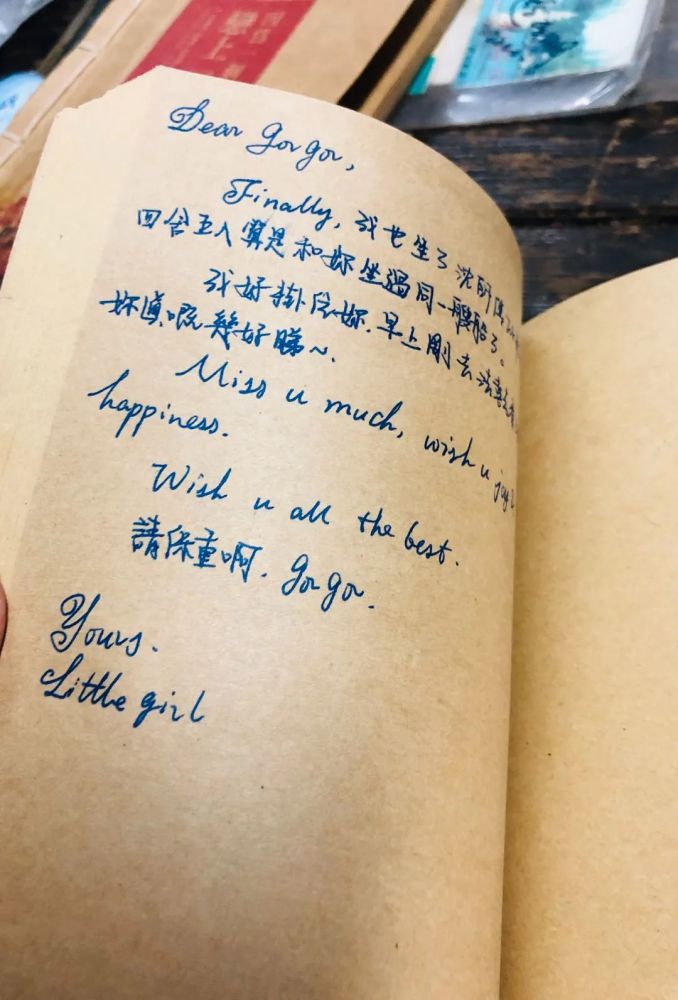 Dear Gor gor,
Finally, 我也生了沈師傅
四舍五入算是和妳坐過同一艘船了。
我好掛住妳，早上剛去法喜寺
妳真嘅幾好睇~.
Miss u much, wish u joy &
happiness.
Wish u all the best.
請保重啊，gor gor.
Yours.
Little girl